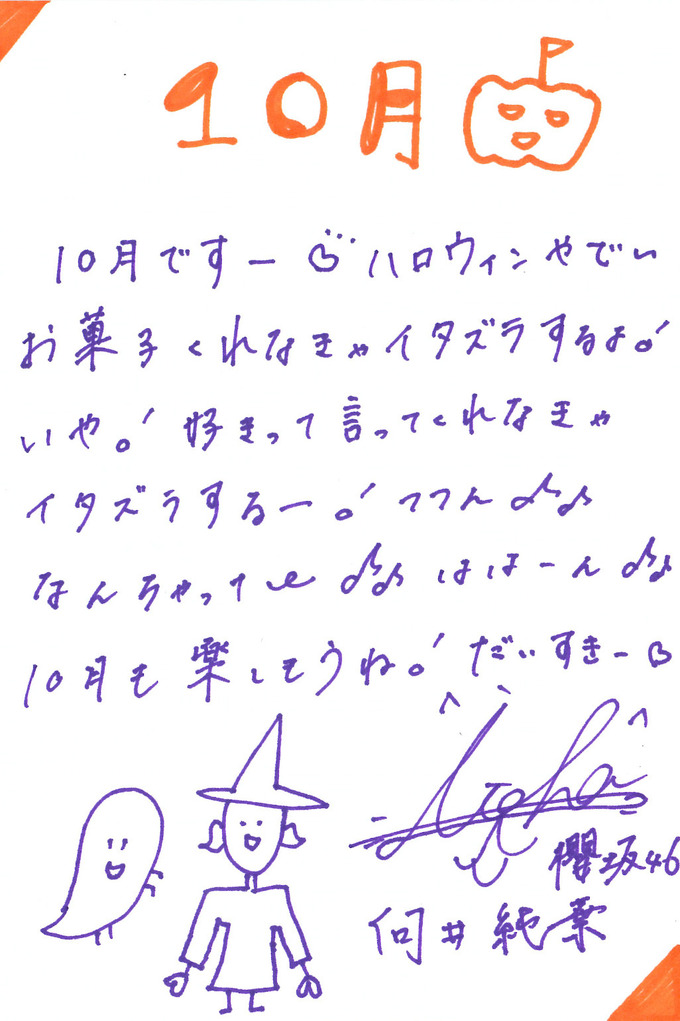 10月
10月ですー♡ ハロウィンやでい
お菓子くれなきゃイタズラするよ!
いや!好きって言ってくれなきゃ
イタズラするー!ててん♪♪
なんちゃって ♪♪ ほほーん♪♪
10月も楽しもうね!だいすきー♡
櫻坂46
向井純葉